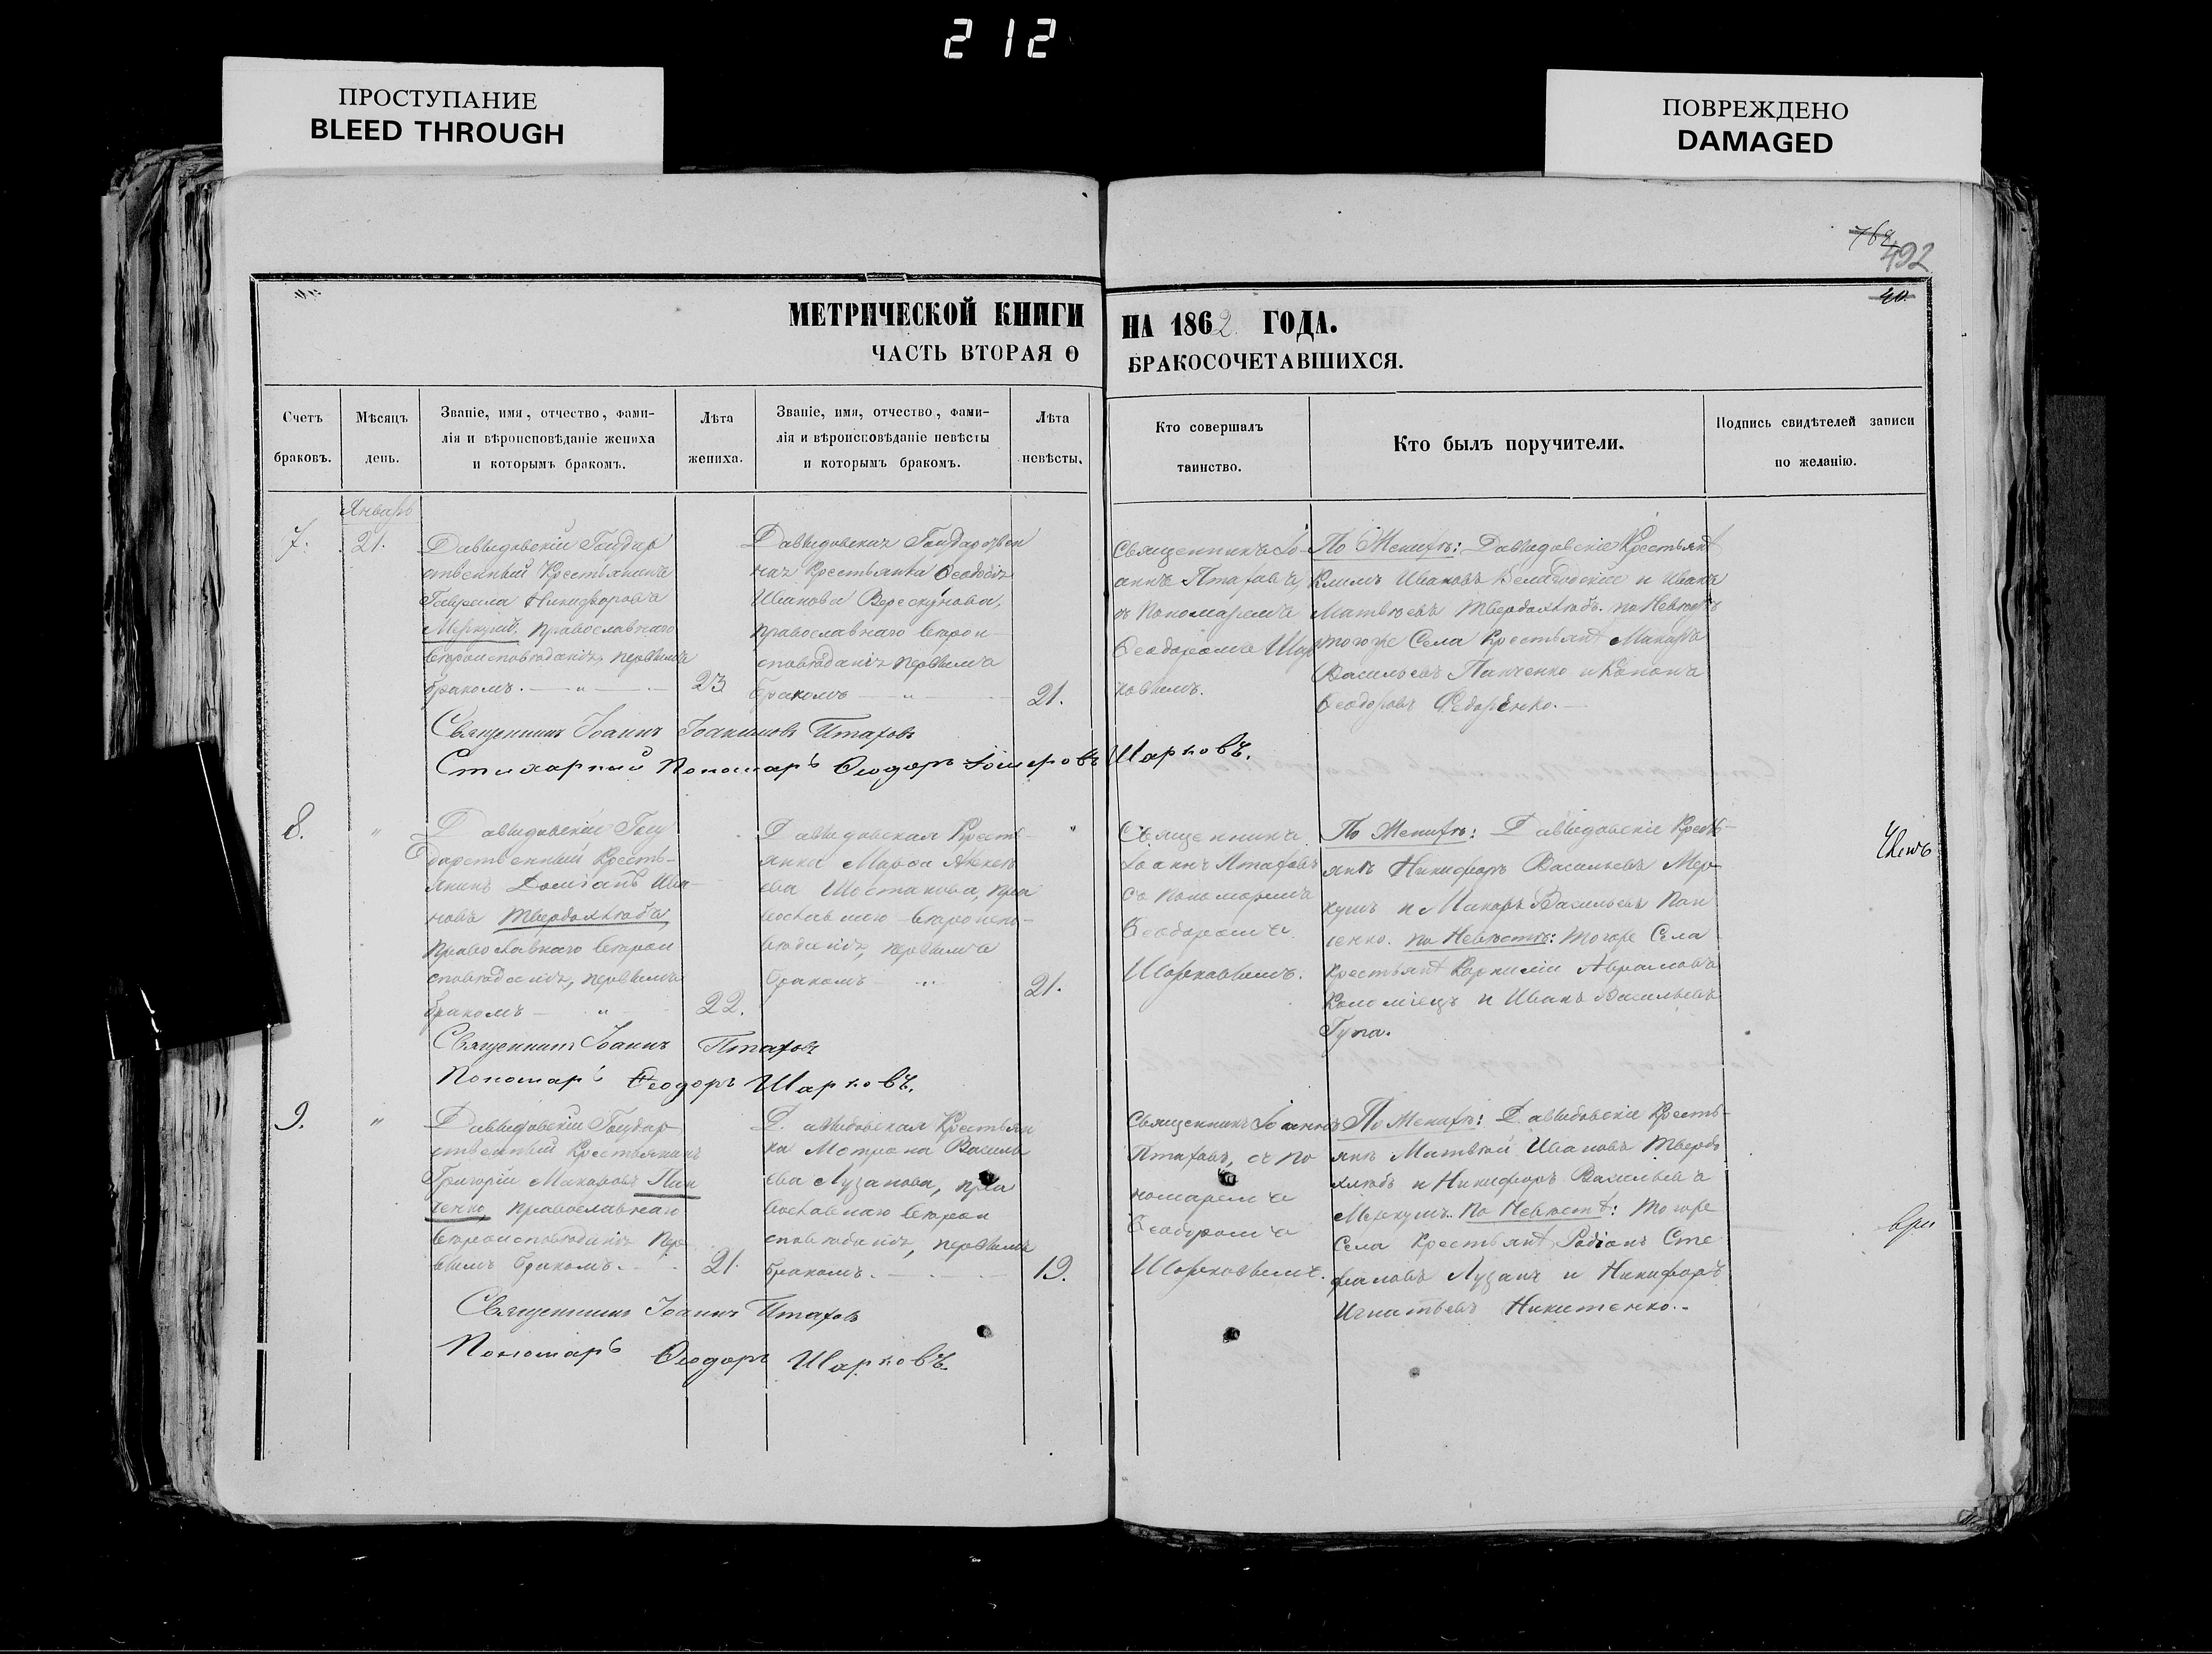 212
ПРОСТУПАНИЕ
BLEED THROUGH
ПОВРЕЖДЕНО
DAMAGED
492
40.
МЕТРИЧЕСКОЙ КНИГИ НА 1862 ГОДА.
ЧАСТЬ ВТОРАЯ О БРАКОСОЧЕТАВШИХСЯ.
Счетъ браковъ.
Мѣсяцъ день.
Званіе, имя, отчество, фами-
лія и вѣроисповѣданіе жениха
и которымъ бракомъ.
Лѣта жениха.
Званіе, имя, отчество, фами-
лія и вѣроисповѣданіе невѣсты
и которымъ бракомъ.
Лѣта невѣсты.
Кто совершалъ
таинство.
Кто былъ поручители.
Подпись свидѣтелей записи
по желанію.
Январь
7.
21.
Давыдовскій Государ
ственный Крестьянинъ
Гаврила Никифоровъ
Меркушъ, православнаго
вѣроисповѣданія, первымъ
бракомъ.
23
Давыдовская Государствен
ная Крестьянка Ѳеодосія
Иванова Верескунова,
православнаго вѣрои-
сповѣданія первымъ
бракомъ
21.
Священникъ Іо-
аннъ Птаховъ,
съ Пономаремъ
Ѳеодоромъ Шар
ковымъ.
По Женихѣ: Давыдовскіе Крестьяне
Климъ Ивановъ и Иванъ
Матвѣевъ Твердохлѣбъ. по Невѣстѣ
тогоже Села Крестьяне Макаръ
Васильевъ Панченко и Кононъ
Ѳеодоровъ Федоренко.
Священникъ Іоаннъ Іоакимовъ Птаховъ
Стихарный Пономарь Ѳеодоръ Шарковъ.
8.
"
Давыдовскій Госу
дарственный Кресть-
янинъ Доміанъ Ива-
новъ Твердохлѣбъ,
православнаго вѣрои-
сповѣданія, первымъ
бракомъ
22.
Давыдовская Кресть-
янка Марѳа Алексѣ
ева Шостакова, пра
вославнаго вѣроиспо-
вѣданія, первымъ
бракомъ
21.
Священникъ
Іоаннъ Птаховъ
съ пономаремъ
Ѳеодоромъ
Шарковымъ.
По Женихѣ: Давыдовскіе Кресть-
яне Никифоръ Васильевъ Мер-
кушъ и Макаръ Васильевъ Пан
ченко. по Невѣстѣ: тогоже Села
Крестьяне Корнилій Аврамовъ
Коломіецъ и Иванъ Васильевъ
Священникъ Іоаннъ Птаховъ
Пономарь Ѳеодоръ Шарковъ.
9.
"
Давыдовскій Государ
ственный Крестьянинъ
Григорій Макаровъ Пан
ченко, православнаго
вѣроисповѣданія пер
вымъ бракомъ.
21.
Давыдовская Крестьян
ка Мотрона Василь
ева Лузанова, пра
вославнаго вѣрои
сповѣданія, первымъ
бракомъ.
19.
Священникъ Іоаннъ
Птаховъ, съ По
номаремъ
Ѳеодоромъ
Шарковымъ.
По Женихѣ: Давыдовскіе Кресть-
яне Матвѣй Ивановъ Твердо
хлѣбъ и Никифоръ Васильевъ
Меркушъ. По Невѣстѣ: тогоже
Села Крестьяне Родіонъ Сте
фановъ Лузанъ и Никифоръ
Игнатьевъ Никитенко.
Священникъ Іоаннъ Птаховъ
Пономарь Ѳеодоръ Шарковъ.